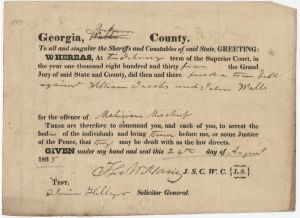 Georgia, County.
To all and singular the Sheriffs and Constables of said State, GREETING:
WHEREAS, At term of the Superior Court, in
the year one thousand eight hundred and thirty five the Grand
Jury of said State and County, did then and there find a true bill
against William Jacobs and John Walls
for the offence of Malicious Mischief
THESE are therefore to command you, and each of you, to arrest the
bodies of the individuals and bring them before me, or some Justice
of the Peace, that they may be dealt with as the law directs.
GIVEN under my hand and seal this 24th day of August
1835
J. S. C. W. C. (L.S.)
TEST,
Junius Hillyer Solicitor General.